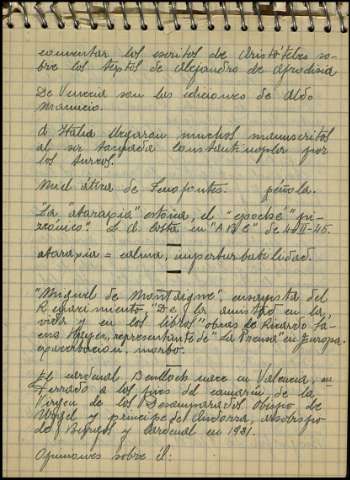 comentar los escritos de Aristóteles so-
bre los textos de Alejandro de Afrodisia
De Venecia son las ediciones de Aldo
Manucio.
A Italia llegaron muchos manuscritos
al ser tomada Constantinopla por
los turcos.
de Jenofonte. péñola.
La "ataraxia" estoica, el "epoché" pi-
rrónico" L. de Costa en "A B C" de
ataraxia = calma, imperturbabilidad.
"Miguel de Montaigne" ensayista del
Renacimiento "De la amistad en la
vida" en los libros "obras de Ricardo Sá-
enz Hayes, representante de "La Prensa" en Europa.
exacerbación, morbo.
El cardenal Benlloch nace en Valencia, en-
terrado a los pies del camarín de la
Virgen de los Desamparados Obispo de
Urgel y príncipe de Andorra, arzobispo
de Burgos y cardenal en 1921.
Opiniones sobre él: